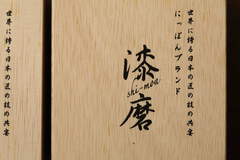 世界に誇る日本の匠の技の共宴
にっぽんブランド
漆磨
shi-moa
世界に誇る日本の匠の技の共宴